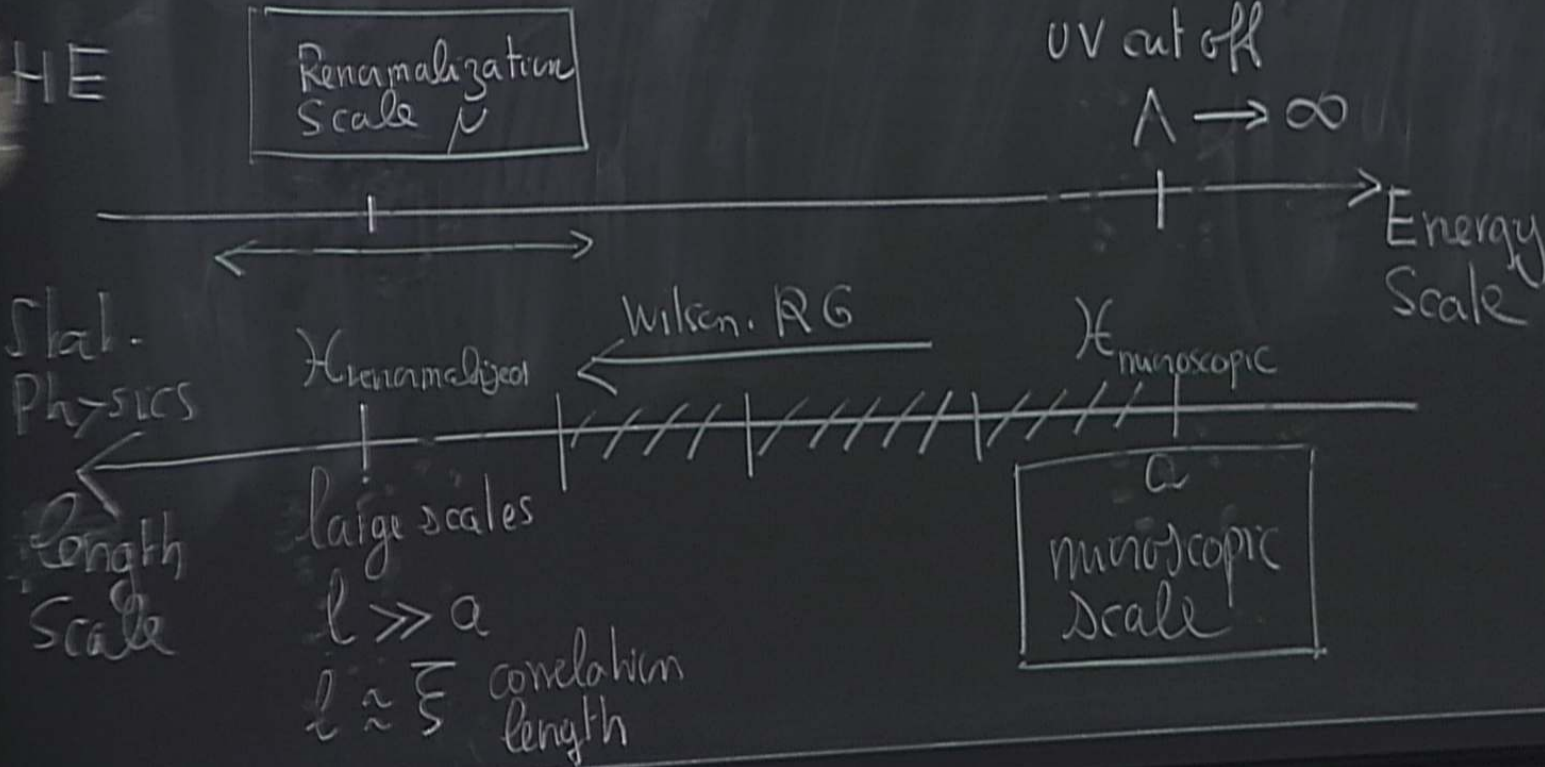 HE
Renormalization
Scale μ
UV cut off
Λ → ∞
Energy
Scale
Stat.
Physics
Wilson. RG
H renormalized
H microscopic
length
Scale
large scales
l >> a
l ≈ ξ correlation
length
a
microscopic
scale